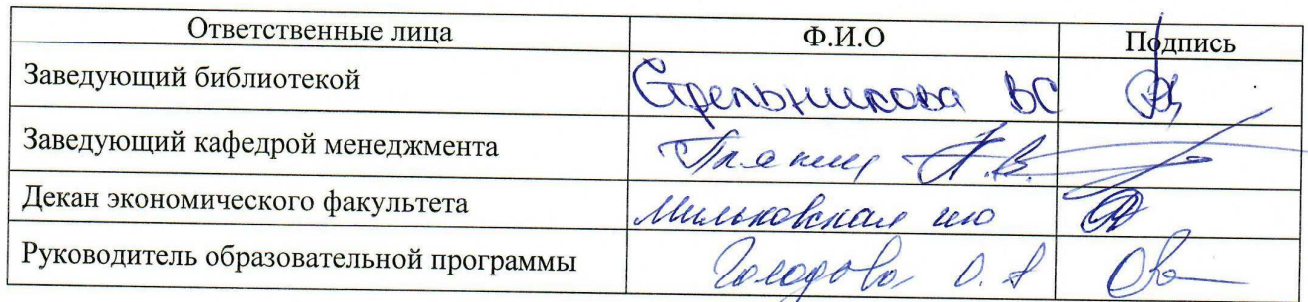 Ответственные лица Ф.И.О Подпись
Заведующий библиотекой Стрельникова ВС
Заведующий кафедрой менеджмента
Декан экономического факультета Мильковская ИЮ
Руководитель образовательной программы Голодова О. А